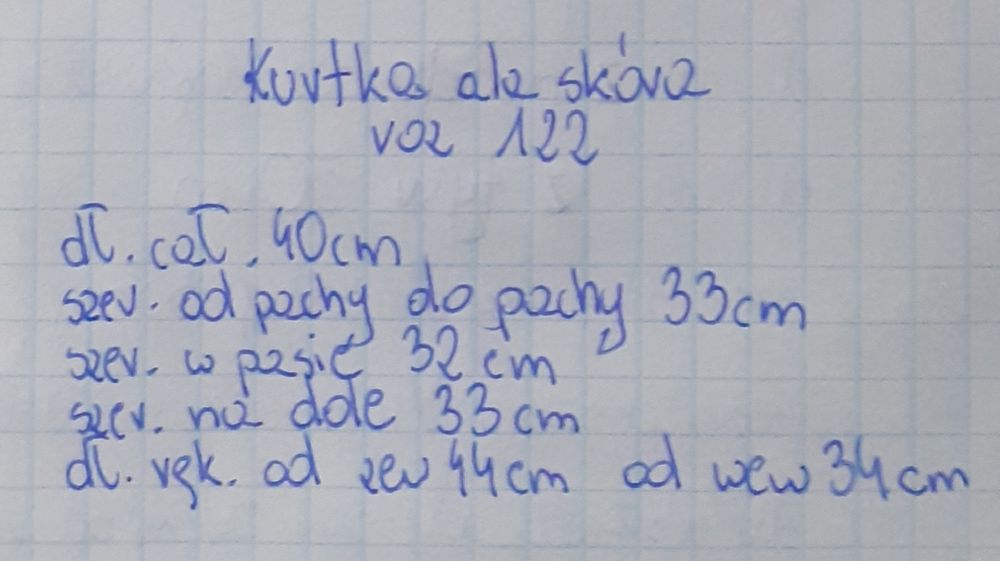 Kurtka ala skóra
roz 122
dł. cał. 40cm
szer. od pachy do pachy 33cm
szer. w pasie 32 cm
szer. na dole 33 cm
dł. ręk. od zew 44cm od wew 34cm